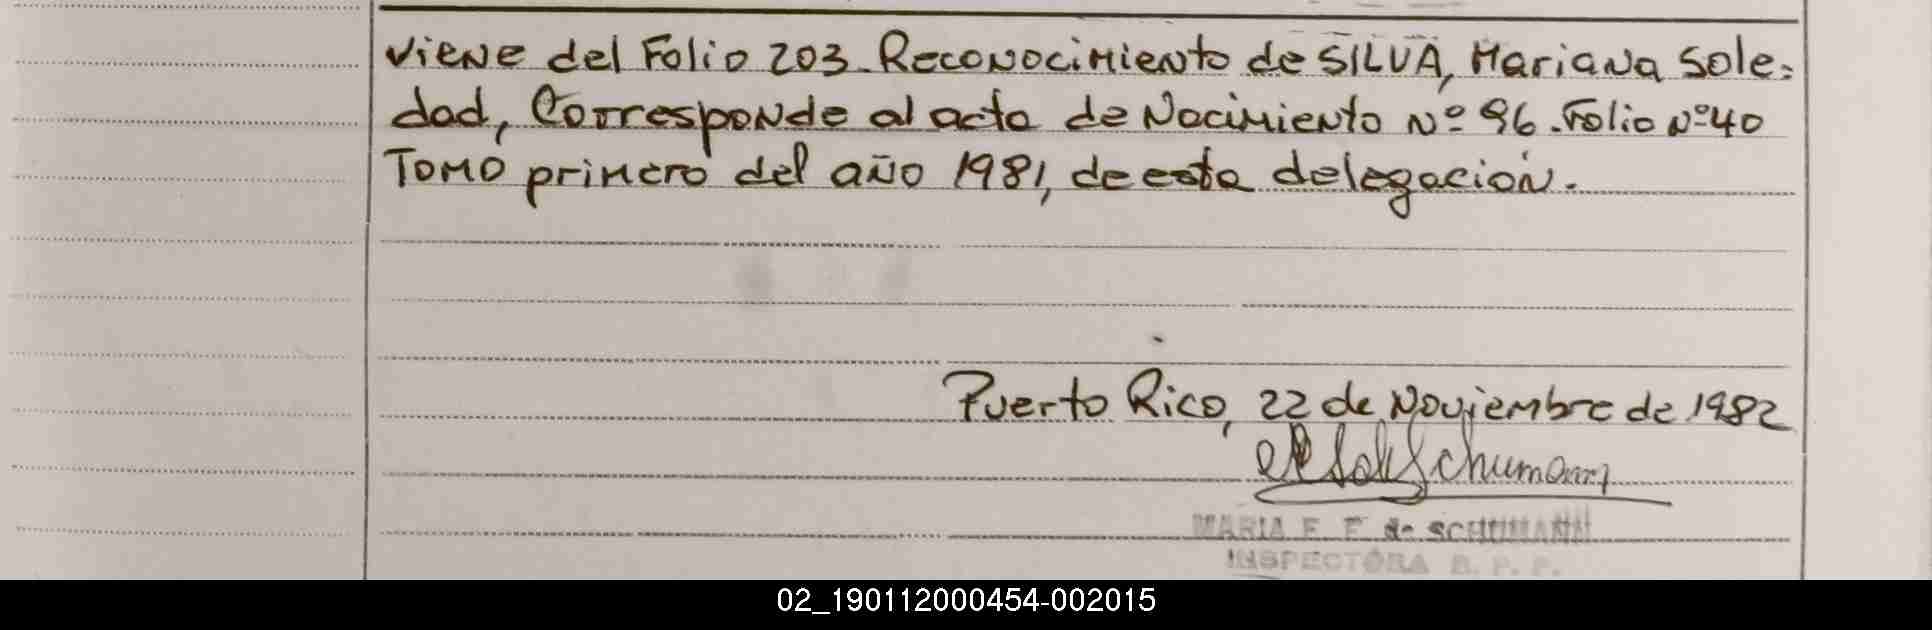 viene del Folio 203. Reconocimiento de SILVA, Mariana Sole=
dad, Corresponde al acta de Nacimiento Nº 96. Folio Nº 40
Tomo primero del año 1981, de esta delegación.
Puerto Rico, 22 de Noviembre de 1982
Schumann
MARIA E. F. de SCHUMANN
INSPECTORA R. P. P.
02_190112000454-002015